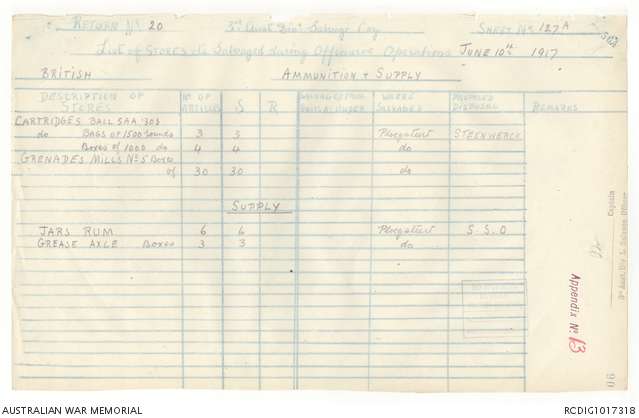 RETURN No 20 3rd Aust Divn Salvage Coy SHEET No. 127A
List of STORES etc Salvaged during Offensive Operations JUNE 10th 1917
BRITISH AMMUNITION + SUPPLY
DESCRIPTION OF STORES No OF ARTICLES S R WHERE SALVAGED PROPOSED DISPOSAL REMARKS
CARTRIDGES BALL SAA 303
do BAGS OF 1500 rounds 3 3 Ploegsteert STEENWERCK
Boxes of 1000 do 4 4 do
GRENADES MILLS No 5 Boxes
of 30 30 do
SUPPLY
JARS RUM 6 6 Ploegsteert S.S.O
GREASE AXLE Boxes 3 3 do
Captain
3rd Aust. Div. L. Salvage Officer
Appendix No B
90
AUSTRALIAN WAR MEMORIAL RCDIG1017318